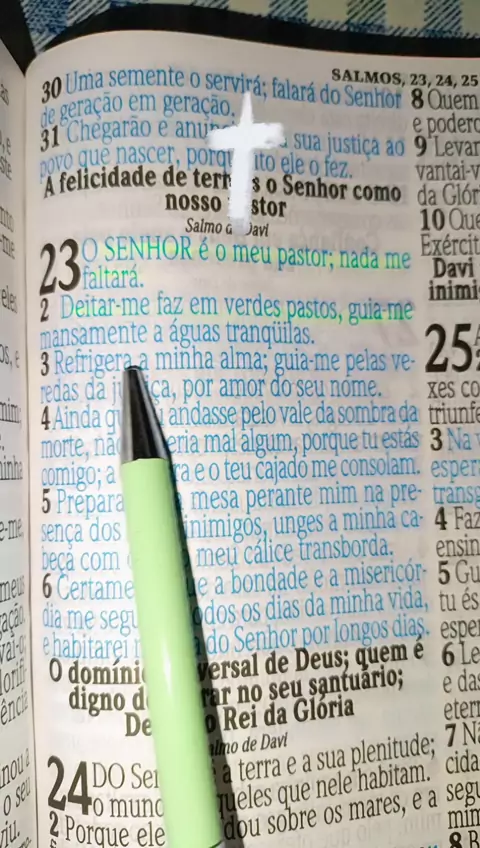 SALMOS, 23, 24, 25
30 Uma semente o servirá; falará do Senhor
de geração em geração.
31 Chegarão e anun sua justiça ao
povo que nascer, porq to ele o fez.
A felicidade de ter s o Senhor como
nosso stor
Salmo d Davi
23 O SENHOR é o meu pastor; nada me
faltará.
2 Deitar-me faz em verdes pastos, guia-me
mansamente a águas tranqüilas.
3 Refrigera a minha alma; guia-me pelas ve-
redas da j iça, por amor do seu nome.
4 Ainda qu andasse pelo vale da sombra da
morte, nã eria mal algum, porque tu estás
comigo; a ra e o teu cajado me consolam.
5 Prepara mesa perante mim na pre-
sença dos inimigos, unges a minha ca-
beça com meu cálice transborda.
6 Certame e a bondade e a misericór-
dia me segu odos os dias da minha vida,
e habitarei n do Senhor por longos dias.
O domíni versal de Deus; quem é
digno d rar no seu santuário;
De o Rei da Glória
almo de Davi
24 DO Sen a terra e a sua plenitude;
o mund queles que nele habitam.
2 Porque ele dou sobre os mares, e a
8 Quem
e podero
9 Levan
vantai-v
da Glór
10 Que
Exércit
Davi
inimi
25
xes co
triunfe
3 Na v
espera
transg
4 Faz
ensin
5 Gu
tu és
espe
6 Le
e das
etern
7 Nã
cida
segu
mim
8 B